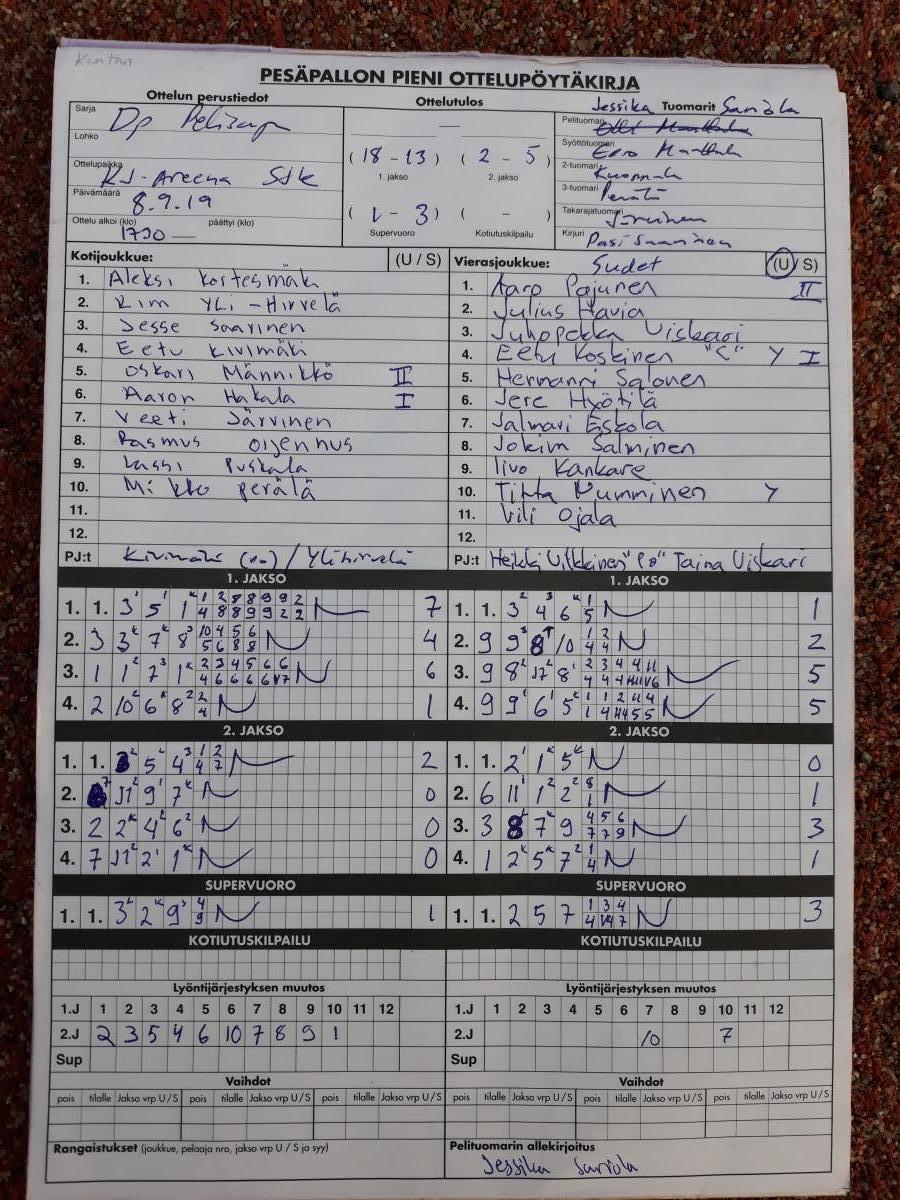 Kantan
PESÄPALLON PIENI OTTELUPÖYTÄKIRJA
Ottelun perustiedot
Ottelutulos
Jessika Tuomarit Sariola
Sarja Dp
Lohko
Ottelupaikka KJ-Areena SJk
Päivämäärä 8.9.19
Ottelu alkoi (klo) päättyi (klo)
1730 —
—
(18 - 13) (2 - 5)
1. jakso 2. jakso
(1 - 3) ( - )
Supervuoro Kotiutuskilpailu
Pelituomari
Syöttötuomari Eero
2-tuomari Kuoppala
3-tuomari Perälä
Takarajatuomari
Kirjuri Pasi Saarinen
Kotijoukkue: (U / S)
1. Aleksi Kortesmäki
2. Kim Yli-Hirvelä
3. Jesse Saarinen
4. Eetu Kivimäki
5. Oskari Männikkö II
6. Aaron Hakala I
7. Veeti Järvinen
8. Rasmus Oijennus
9. Lassi Puskala
10. Mikko Perälä
11.
12.
PJ:t Kivimäki / Ylihirvelä
Vierasjoukkue: Sudet (U / S)
1. Aaro Pajunen II
2. Julius Havia
3. Juhopekka Uiskari
4. Eetu Koskinen "C" Y I
5. Hermanni Salonen
6. Jere Hyötilä
7. Jalmari Eskola
8. Jokim Salminen
9. Iivo Kankare
10. Titta Nummiinen Y
11. Vili Ojala
12.
PJ:t Heikki Vilkkinen Taina Uiskari
1. JAKSO
1. 1. 3 5 1 7
2. 3 3 7 8 4
3. 1 1 7 1 6
4. 2 10 6 8 1
1. JAKSO
1. 1. 3 4 6 1
2. 9 9 8 10 2
3. 9 8 J2 8 5
4. 9 9 6 5 5
2. JAKSO
1. 1. 3 5 4 2
2. J1 9 7 0
3. 2 2 4 6 0
4. 7 J1 2 1 0
2. JAKSO
1. 1. 2 1 5 0
2. 6 11 1 2 1
3. 3 8 7 9 3
4. 1 2 5 7 1
SUPERVUORO
1. 1. 3 2 9 1
SUPERVUORO
1. 1. 2 5 7 3
KOTIUTUSKILPAILU
KOTIUTUSKILPAILU
Lyöntijärjestyksen muutos
1.J 1 2 3 4 5 6 7 8 9 10 11 12
2.J 2 3 5 4 6 10 7 8 9 1
Sup
Lyöntijärjestyksen muutos
1.J 1 2 3 4 5 6 7 8 9 10 11 12
2.J 10 7
Sup
Vaihdot
pois tilalle Jakso vrp U/S pois tilalle Jakso vrp U/S pois tilalle Jakso vrp U/S
Vaihdot
pois tilalle Jakso vrp U/S pois tilalle Jakso vrp U/S pois tilalle Jakso vrp U/S
Rangaistukset (joukkue, pelaaja nro, jakso vrp U / S ja syy)
Pelituomarin allekirjoitus
Jessika Sariola